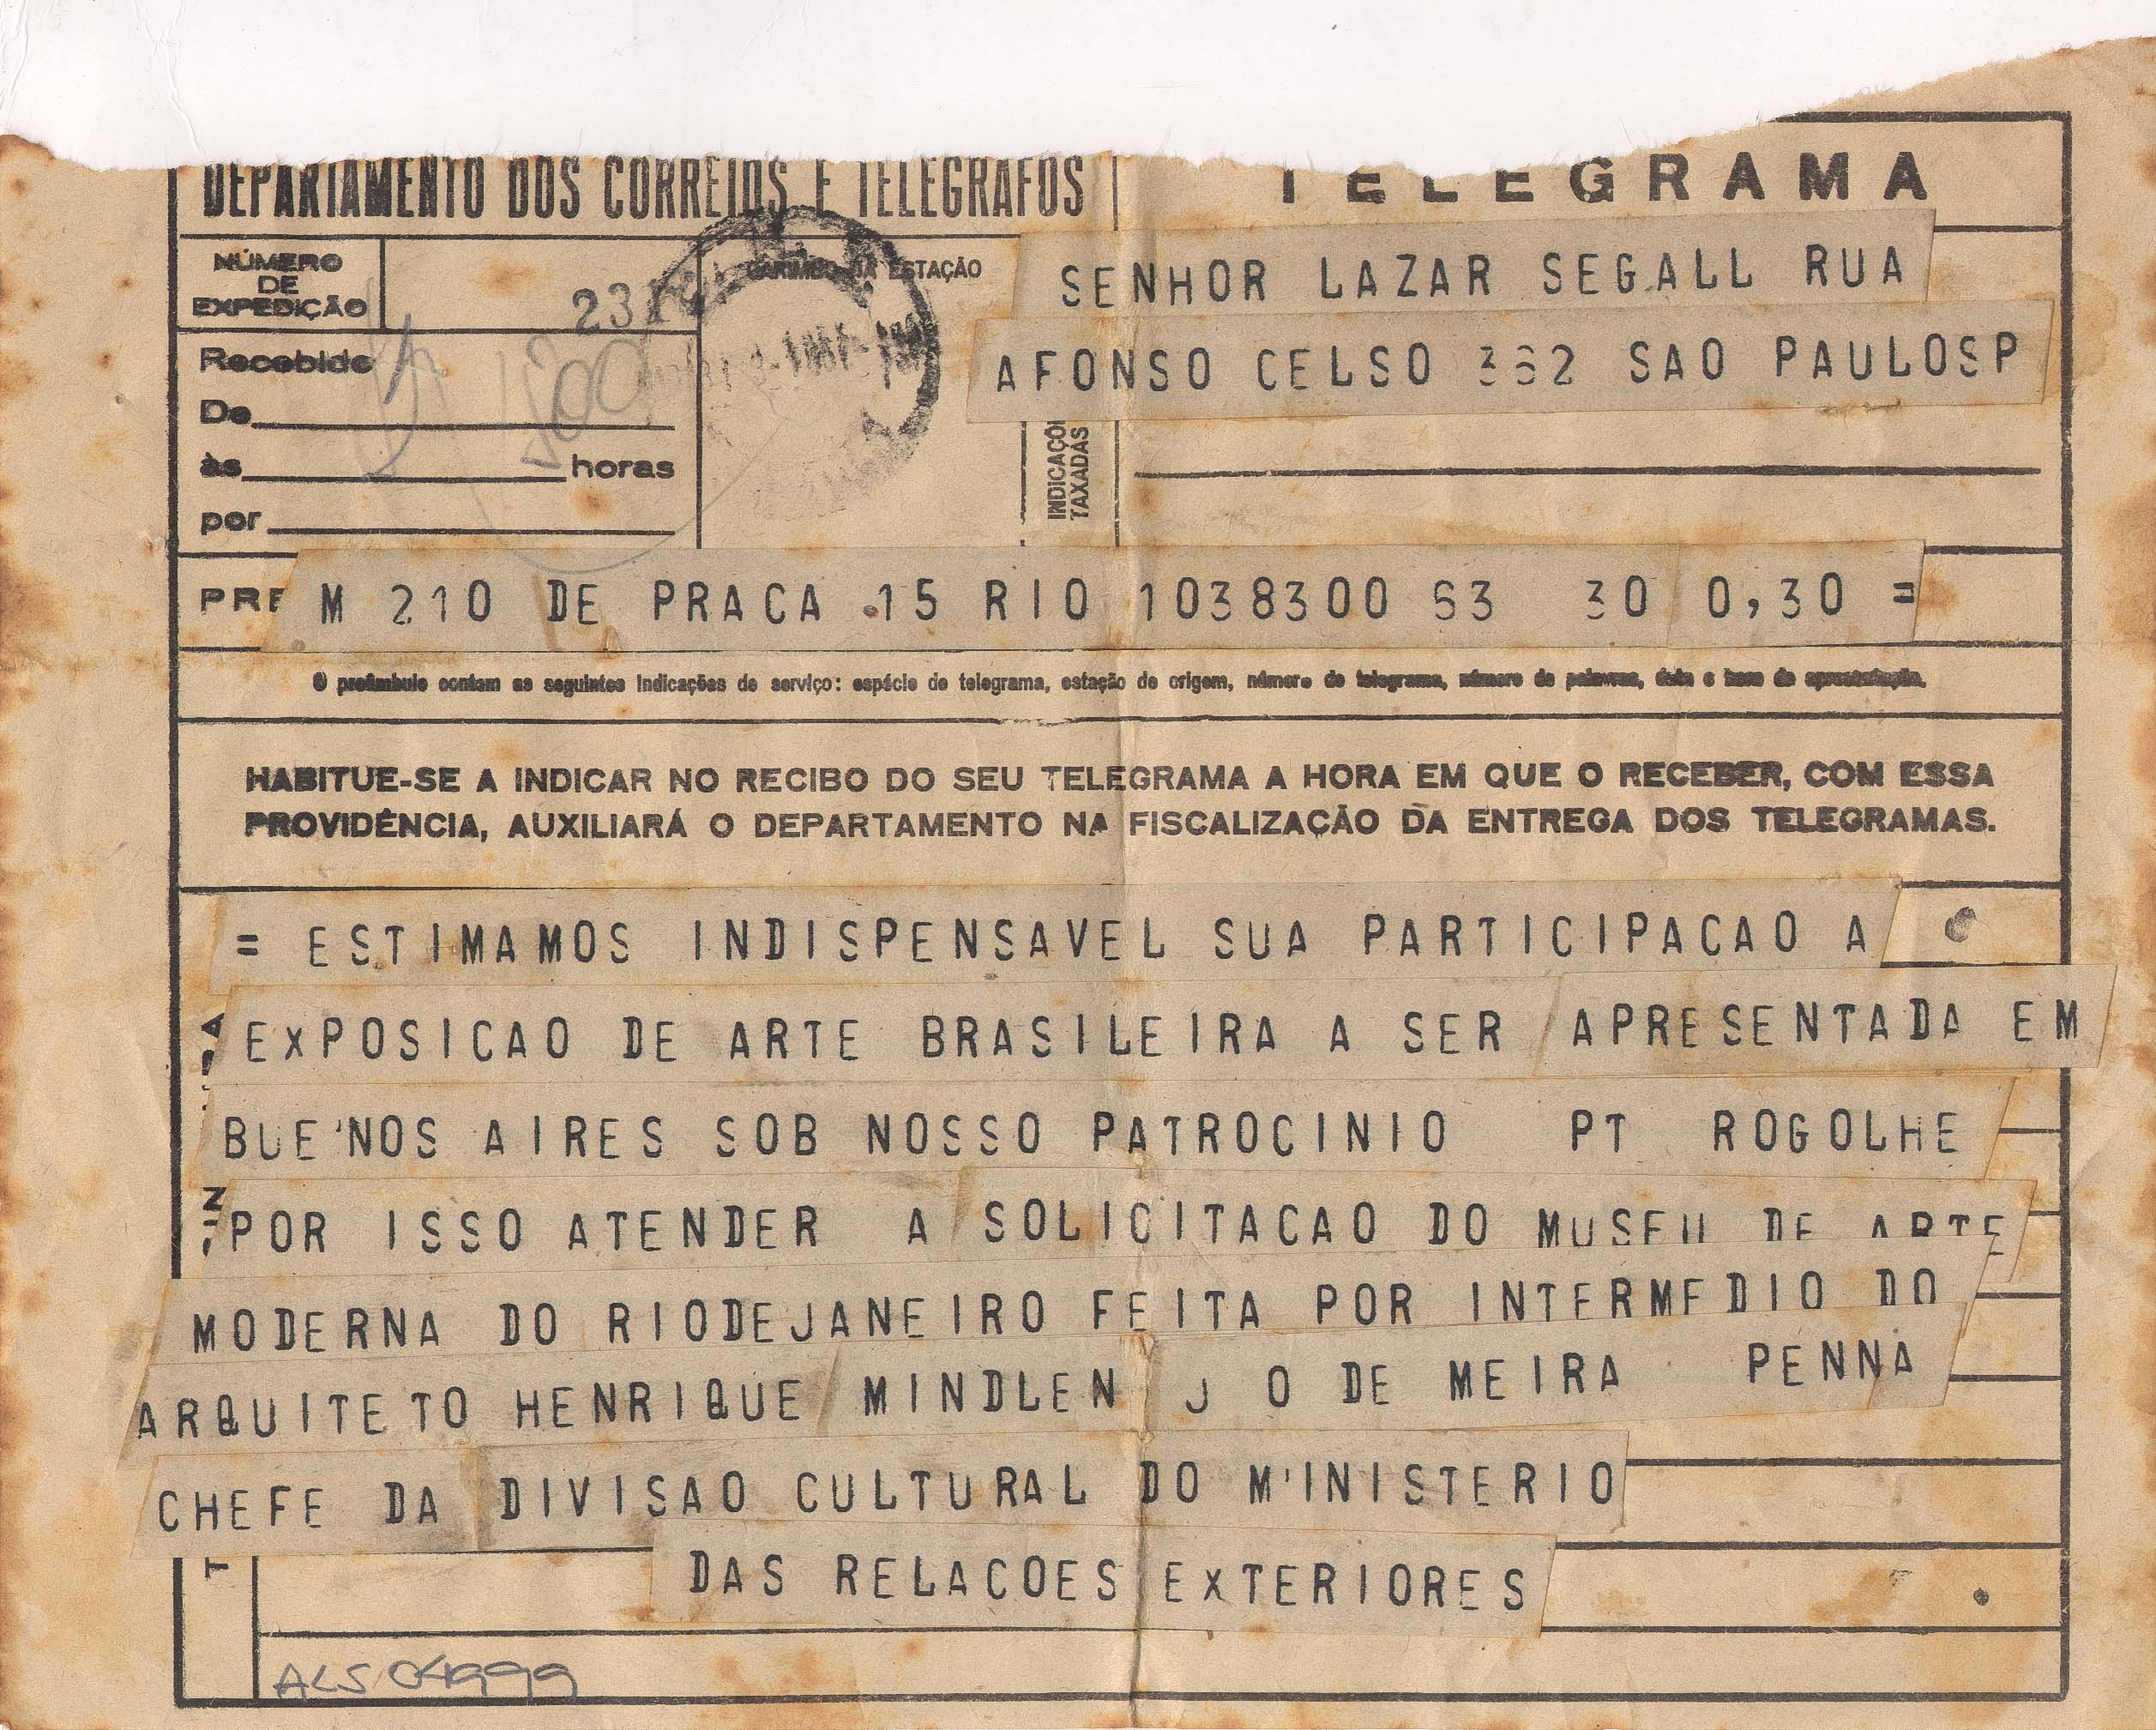 DEPARTAMENTO DOS CORREIOS E TELEGRAFOS
TELEGRAMA
NÚMERO
DE
EXPEDIÇÃO
CARIMBO DA ESTAÇÃO
SENHOR LAZAR SEGALL RUA
AFONSO CELSO 362 SAO PAULOSP
Recebido
De
às horas
por
INDICAÇÕ
TAXADAS
PRE M 210 DE PRACA 15 RIO 1038300 63 30 0,30 =
O preâmbulo contem as seguintes indicações de serviço: espécie de telegrama, estação de origem, número do telegrama, número de palavras, data e hora da apresentação.
HABITUE-SE A INDICAR NO RECIBO DO SEU TELEGRAMA A HORA EM QUE O RECEBER, COM ESSA
PROVIDÊNCIA, AUXILIARÁ O DEPARTAMENTO NA FISCALIZAÇÃO DA ENTREGA DOS TELEGRAMAS.
= ESTIMAMOS INDISPENSAVEL SUA PARTICIPACAO A
EXPOSICAO DE ARTE BRASILEIRA A SER APRESENTADA EM
BUE'NOS AIRES SOB NOSSO PATROCINIO PT ROGOLHE
POR ISSO ATENDER A SOLICITACAO DO MUSEU DE ARTE
MODERNA DO RIODEJANEIRO FEITA POR INTERMEDIO DO
ARQUITETO HENRIQUE MINDLEN J O DE MEIRA PENNA
CHEFE DA DIVISAO CULTURAL DO M'INISTERIO
DAS RELACOES EXTERIORES
ALS 04999